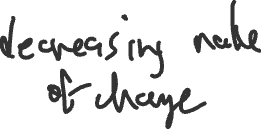 decreasing rate
of change